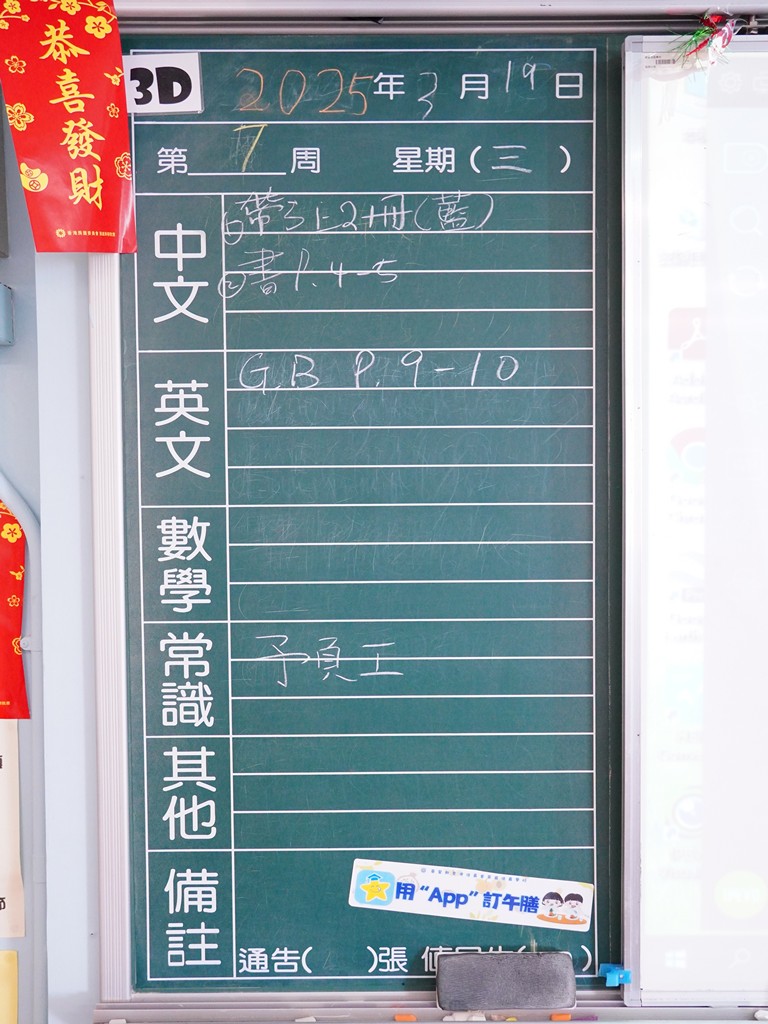 恭喜發財
3D
2025年3月19日
第7周 星期(三)
中文
①帶3上2冊(藍)
②書P.4-5
英文
G.B P.9-10
數學
常識
預工
其他
備註
用“App”訂午膳
通告( )張